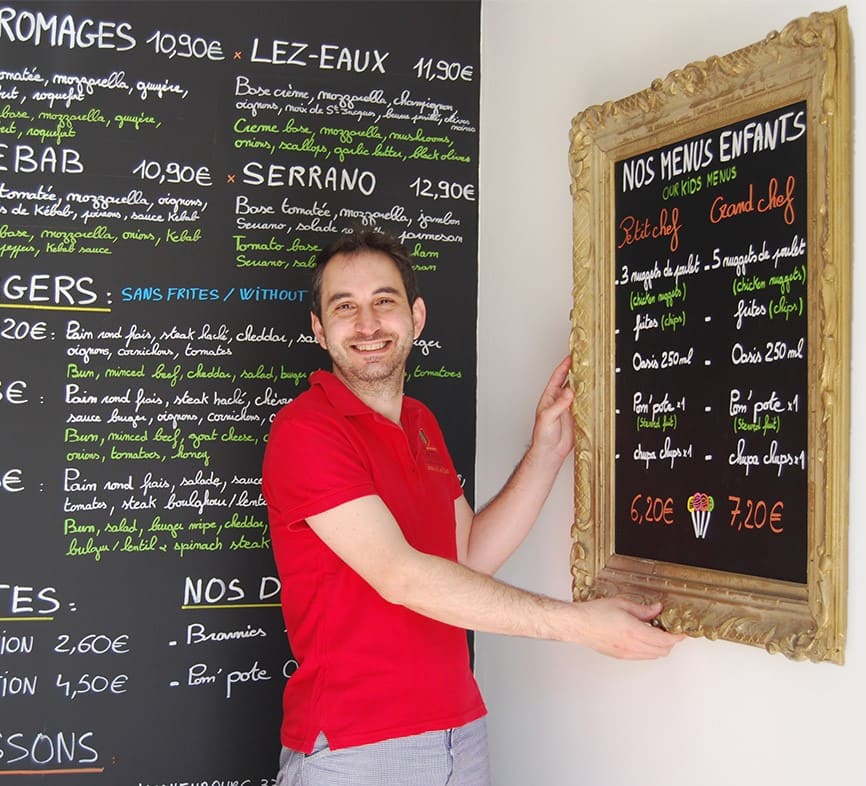 ROMAGES 10,90€ × LEZ-EAUX 11,90€
tomatée, mozzarella, gruyère,
roquefort
base, mozzarella, gruyère,
roquefort
Base crème, mozzarella, champignon,
oignons, noix de St Jacques, beurre persillé, olives noires
Creme base, mozzarella, mushrooms,
onions, scallops, garlic butter, black olives
EBAB 10,90€ × SERRANO 12,90€
tomatée, mozzarella, oignons,
de Kébab, poivrons, sauce Kebab
base, mozzarella, onions, Kebab
peppers, Kebab sauce
Base tomatée, mozzarella, jambon
Serrano, salade parmesan
Tomato base ham
Serrano, sal san
GERS : SANS FRITES / WITHOUT
20€ : Pain rond frais, steak haché, cheddar, sa urger
oignons, cornichons, tomates
Bun, minced beef, cheddar, salad, burg tomatoes
€ : Pain rond frais, steak haché, chèvre
sauce burger, oignons, cornichons,
Bun, minced beef, goat cheese,
onions, tomatoes, honey
€ : Pain rond frais, salade, sauce
tomates, steak boulghour/len
Bun, salad, burger mipe, cheddar,
bulgur/lentil & spinach steak
TES :
TION 2,60€
TION 4,50€
NOS D
- Brownies
- Pom'pote
SSONS :
NOS MENUS ENFANTS
OUR KIDS MENUS
Petit chef Grand chef
- 3 nuggets de poulet - 5 nuggets de poulet
(chicken nuggets) (chicken nuggets)
- frites (chips) - frites (chips)
- Oasis 250ml - Oasis 250ml
- Pom'pote x1 - Pom'pote x1
(Stewed fruit) (Stewed fruit)
- chupa chups x1 - chupa chups x1
6,20€ 7,20€